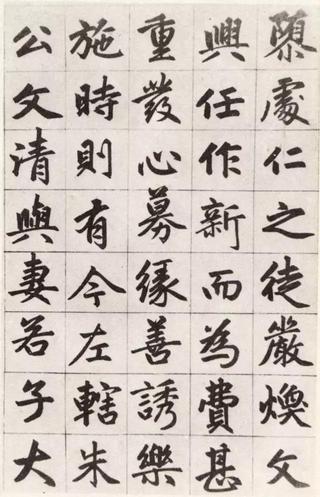 隳處仁之徒嚴煥文
興任作新而為費甚
重發心募緣善誘樂
施時則有今左轄朱
公文清與妻若子大